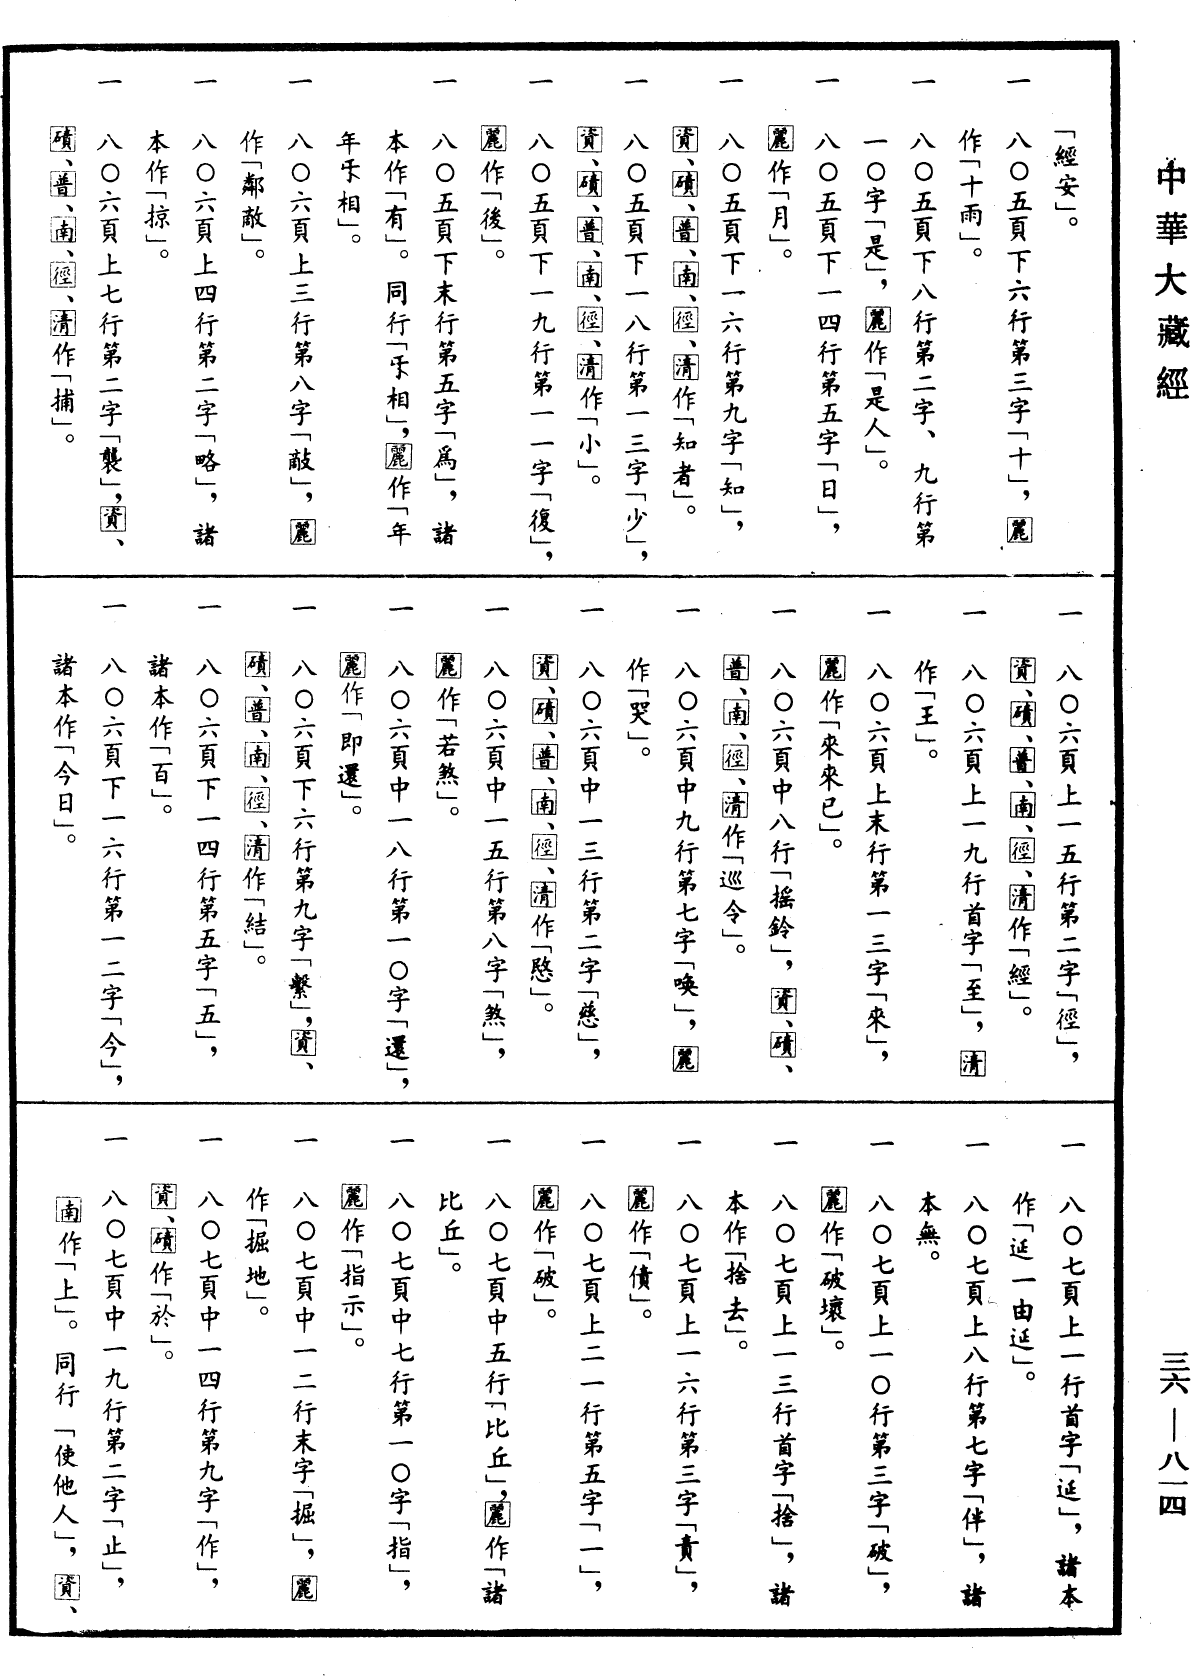 中華大藏經
三六—八一四
「經安」。
一 八〇五頁下六行第三字「十」，麗
作「十雨」。
一 八〇五頁下八行第二字、九行第
一〇字「是」，麗作「是人」。
一 八〇五頁下一四行第五字「日」，
麗作「月」。
一 八〇五頁下一六行第九字「知」，
資、磧、普、南、徑、清作「知者」。
一 八〇五頁下一八行第一三字「少」，
資、磧、普、南、徑、清作「小」。
一 八〇五頁下一九行第一一字「復」，
麗作「後」。
一 八〇五頁下末行第五字「爲」，諸
本作「有」。同行「乐相」，麗作「年
年乐相」。
一 八〇六頁上三行第八字「敵」，麗
作「鄰敵」。
一 八〇六頁上四行第二字「略」，諸
本作「掠」。
一 八〇六頁上七行第二字「襲」，資、
磧、普、南、徑、清作「捕」。
一 八〇六頁上一五行第二字「徑」，
資、磧、普、南、徑、清作「經」。
一 八〇六頁上一九行首字「至」，清
作「王」。
一 八〇六頁上末行第一三字「來」，
麗作「來來已」。
一 八〇六頁中八行「搖鈴」，資、磧、
普、南、徑、清作「巡令」。
一 八〇六頁中九行第七字「喚」，麗
作「哭」。
一 八〇六頁中一三行第二字「慈」，
資、磧、普、南、徑、清作「愍」。
一 八〇六頁中一五行第八字「煞」，
麗作「若煞」。
一 八〇六頁中一八行第一〇字「還」，
麗作「即還」。
一 八〇六頁下六行第九字「繫」，資、
磧、普、南、徑、清作「結」。
一 八〇六頁下一四行第五字「五」，
諸本作「百」。
一 八〇六頁下一六行第一二字「今」，
諸本作「今日」。
一 八〇七頁上一行首字「延」，諸本
作「延一由延」。
一 八〇七頁上八行第七字「伴」，諸
本無。
一 八〇七頁上一〇行第三字「破」，
麗作「破壞」。
一 八〇七頁上一三行首字「捨」，諸
本作「捨去」。
一 八〇七頁上一六行第三字「責」，
麗作「債」。
一 八〇七頁上二一行第五字「一」，
麗作「破」。
一 八〇七頁中五行「比丘」，麗作「諸
比丘」。
一 八〇七頁中七行第一〇字「指」，
麗作「指示」。
一 八〇七頁中一二行末字「掘」，麗
作「掘地」。
一 八〇七頁中一四行第九字「作」，
資、磧作「於」。
一 八〇七頁中一九行第二字「止」，
南作「上」。同行「使他人」，資、